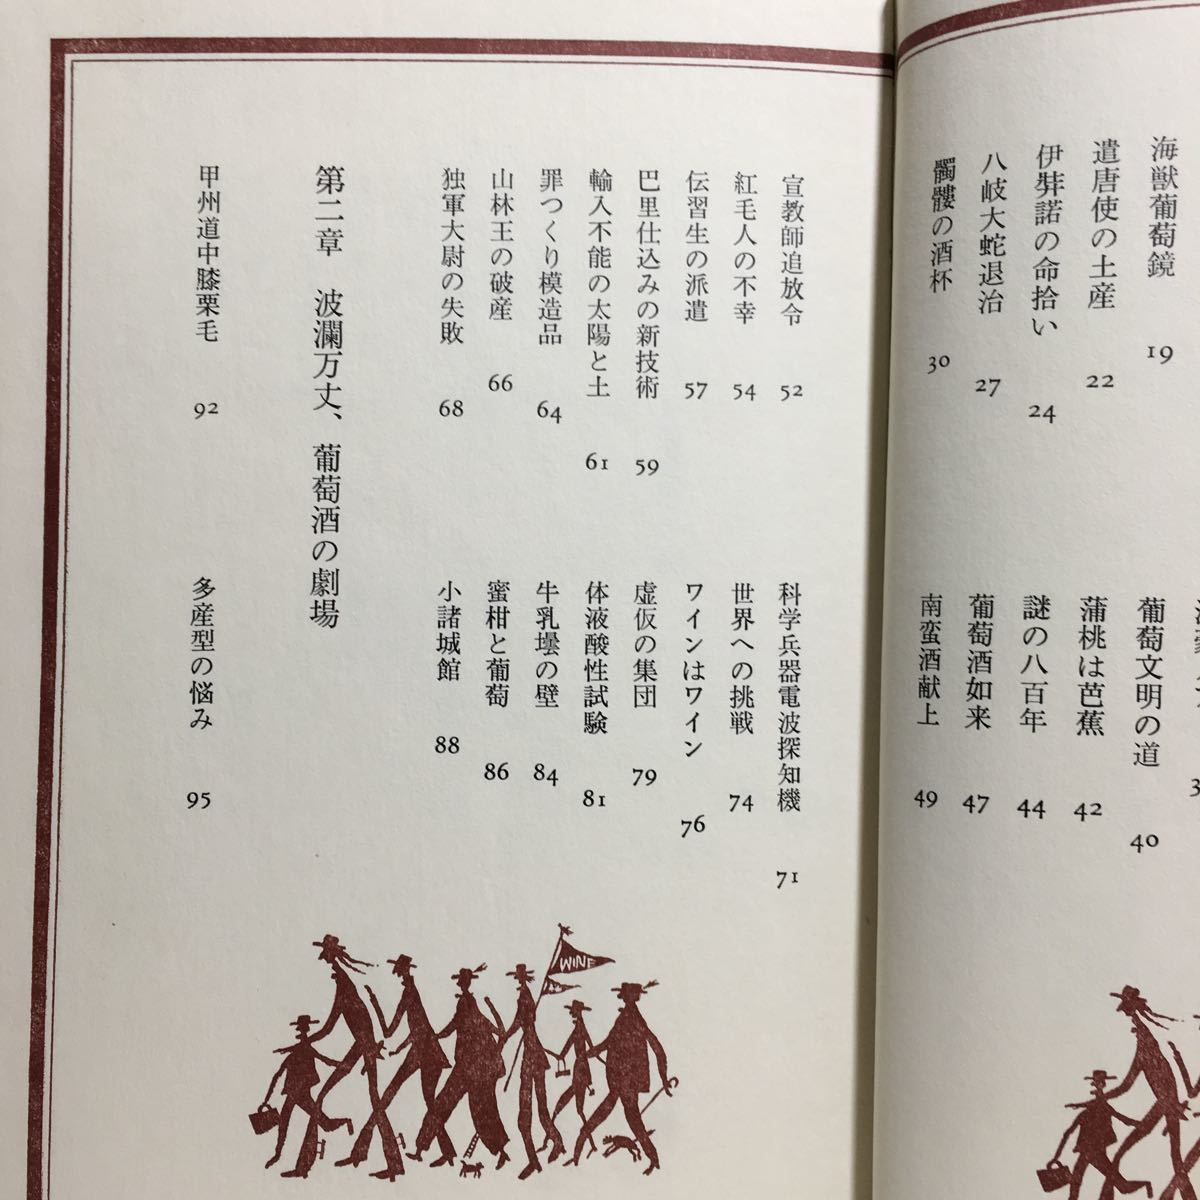 海獣葡萄鏡 19
遣唐使の土産 22
伊弉諾の命拾い 24
八岐大蛇退治 27
髑髏の酒杯 30
葡萄文明の道 40
蒲桃は芭蕉 42
謎の八百年 44
葡萄酒如来 47
南蛮酒献上 49
宣教師追放令 52
紅毛人の不幸 54
伝習生の派遣 57
巴里仕込みの新技術 59
輸入不能の太陽と土 61
罪つくり模造品 64
山林王の破産 66
独軍大尉の失敗 68
科学兵器電波探知機 71
世界への挑戦 74
ワインはワイン 76
虚仮の集団 79
体液酸性試験 81
牛乳壜の壁 84
蜜柑と葡萄 86
小諸城館 88
第二章 波瀾万丈、葡萄酒の劇場
甲州道中膝栗毛 92
多産型の悩み 95
WINE